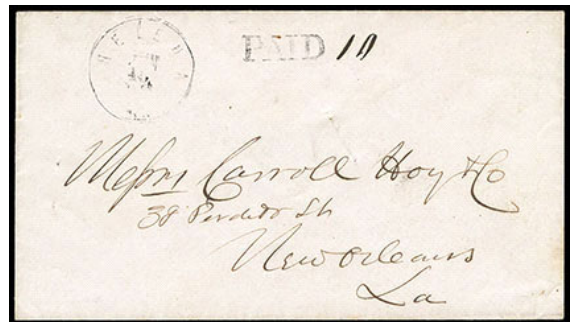 HELENA
PAID 10
Messrs Carroll Hoy & Co
38 Perdido St
New Orleans
La